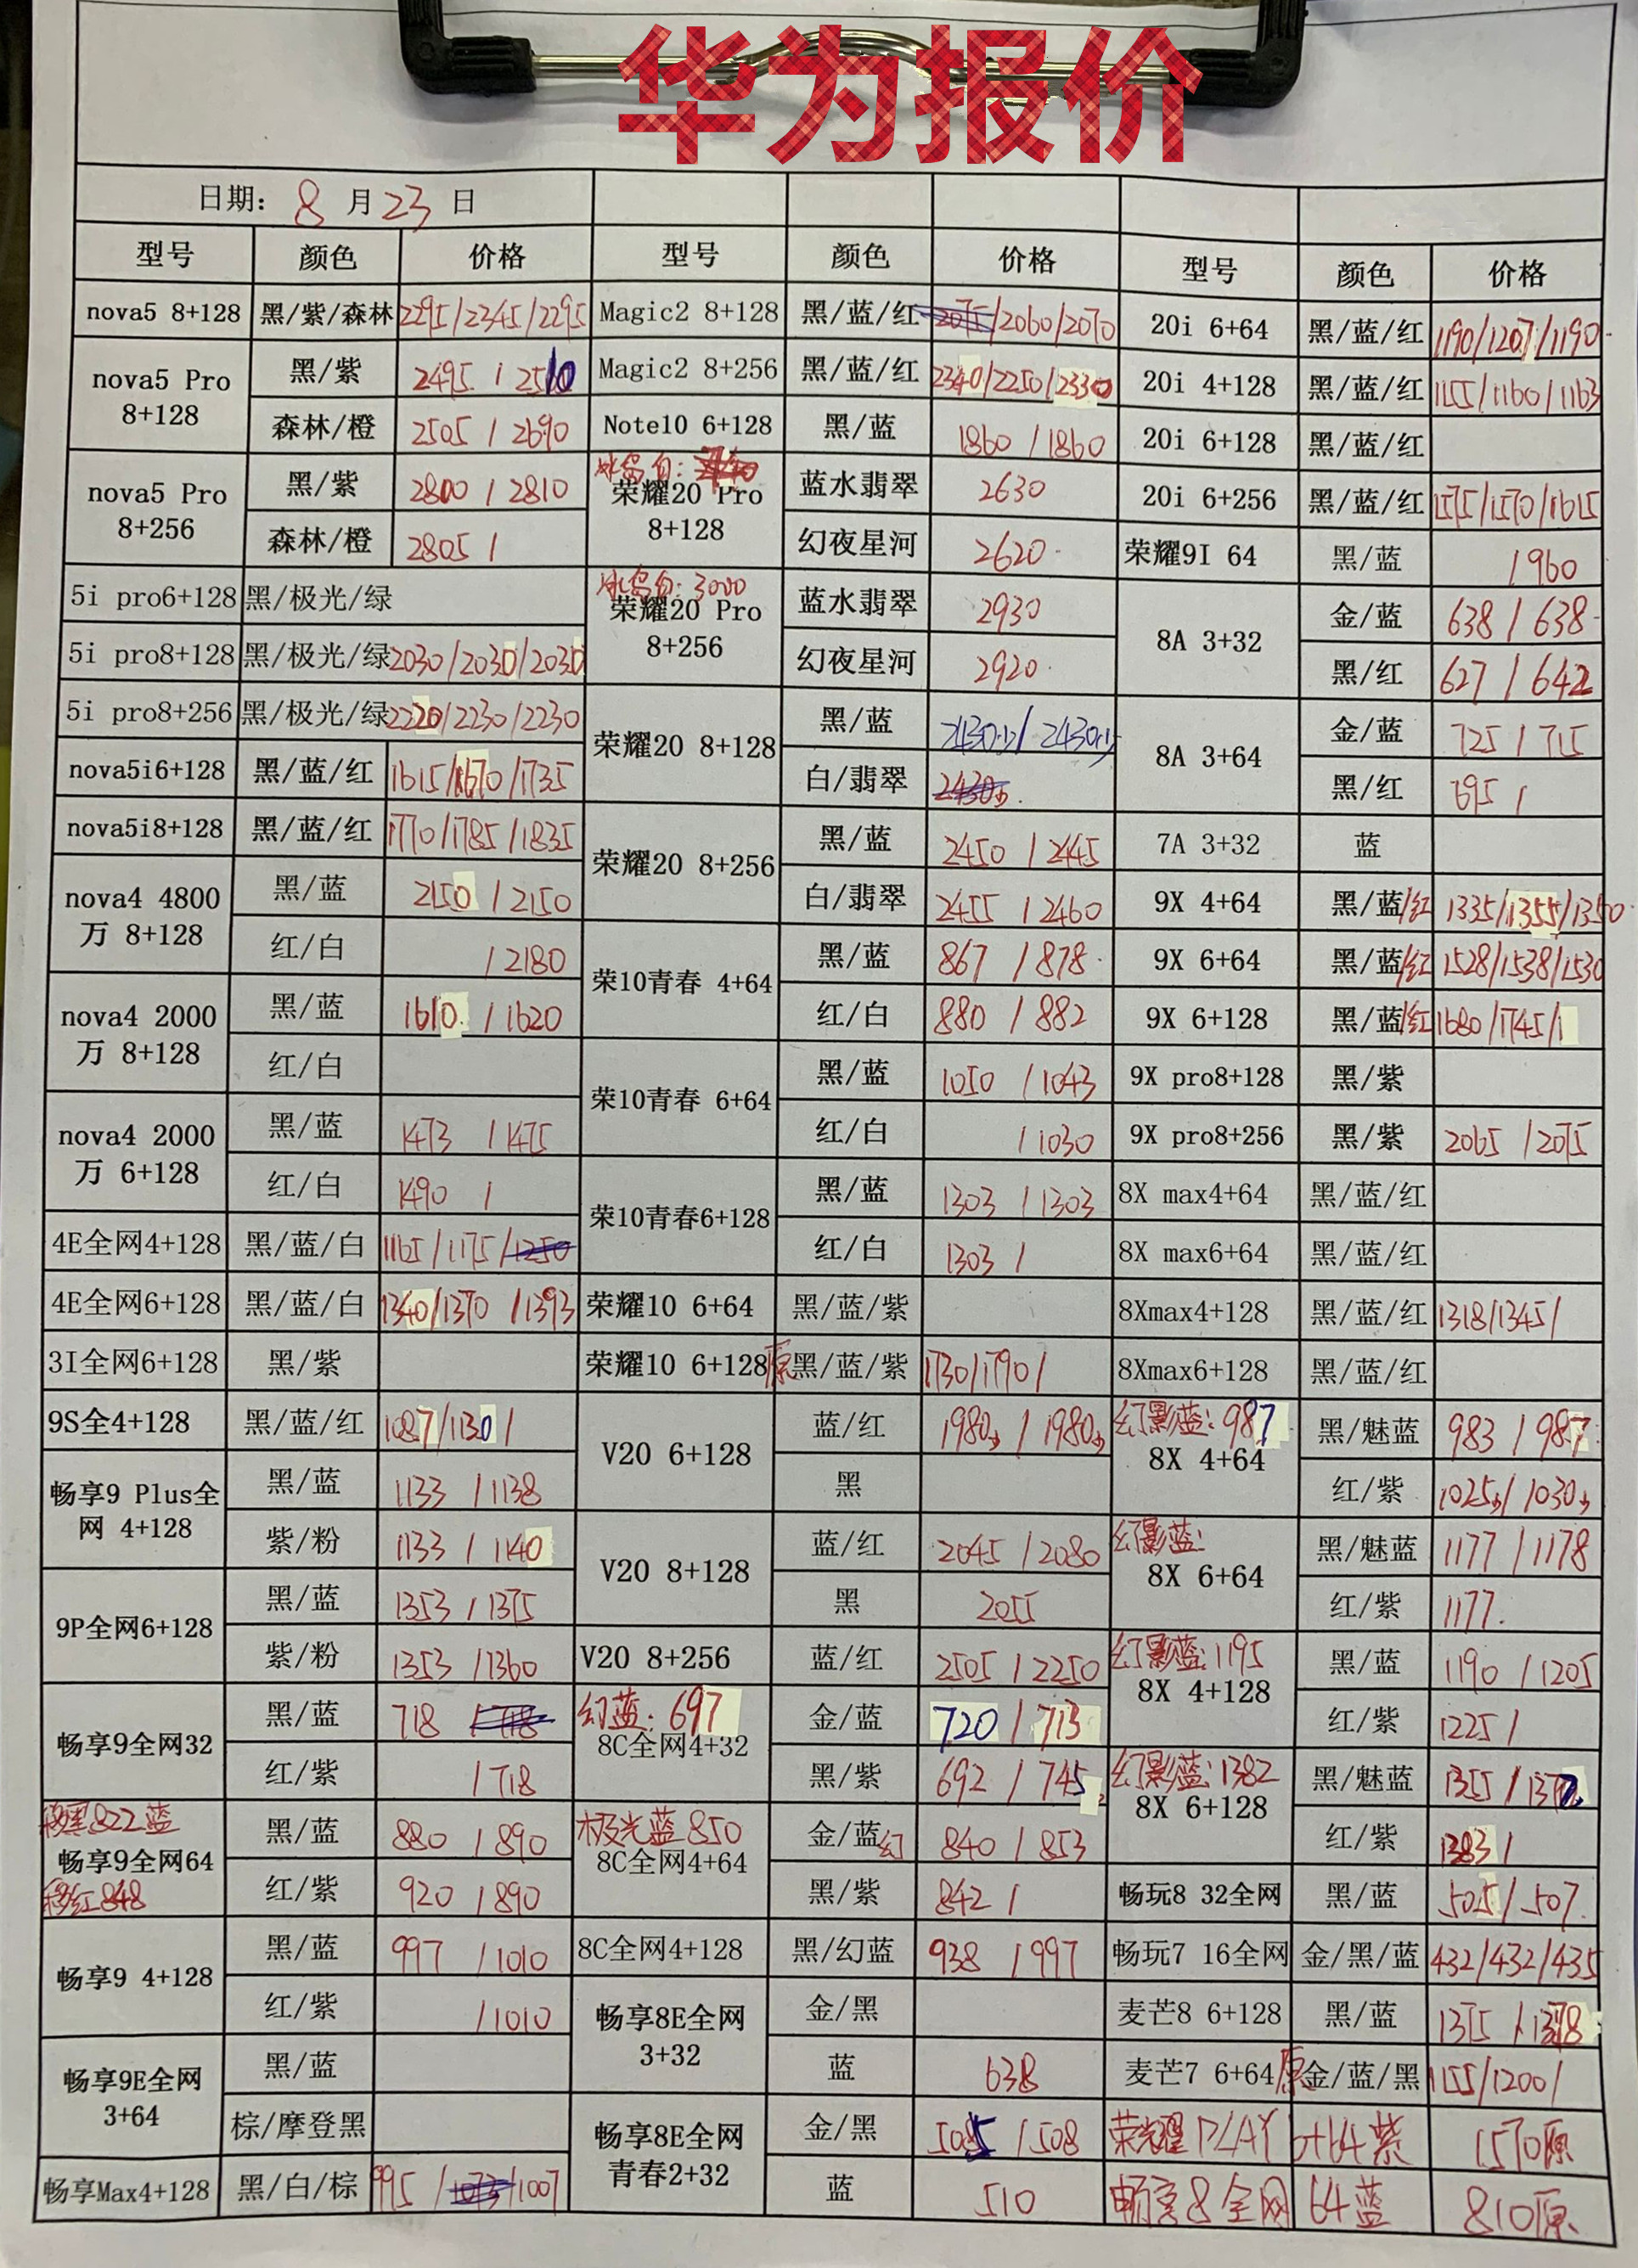 华为报价
日期: 8 月 23 日
型号 颜色 价格 型号 颜色 价格 型号 颜色 价格
nova5 8+128 黑/紫/森林 2295/2345/2295 Magic2 8+128 黑/蓝/红 /2060/2070 20i 6+64 黑/蓝/红 1190/1207/1190
nova5 Pro 8+128 黑/紫 2495 / 2510 Magic2 8+256 黑/蓝/红 2340/2250/2330 20i 4+128 黑/蓝/红 1155/1160/1163
森林/橙 2505 / 2690 Note10 6+128 黑/蓝 1860 / 1860 20i 6+128 黑/蓝/红
nova5 Pro 8+256 黑/紫 2800 / 2810 冰岛白: 荣耀20 Pro 8+128 蓝水翡翠 2630 20i 6+256 黑/蓝/红 1575/1570/1615
森林/橙 2805 / 幻夜星河 2620 荣耀9I 64 黑/蓝 / 960
5i pro6+128 黑/极光/绿 冰岛白: 3000 荣耀20 Pro 8+256 蓝水翡翠 2930 8A 3+32 金/蓝 638 / 638
5i pro8+128 黑/极光/绿 2030/2030/2030 幻夜星河 2920 黑/红 627 / 642
5i pro8+256 黑/极光/绿 2220/2230/2230 荣耀20 8+128 黑/蓝 2430少/ 2430少 8A 3+64 金/蓝 725 / 715
nova5i6+128 黑/蓝/红 1615/1670/1735 白/翡翠 黑/红 695 /
nova5i8+128 黑/蓝/红 1770/1785/1835 荣耀20 8+256 黑/蓝 2450 / 2445 7A 3+32 蓝
nova4 4800万 8+128 黑/蓝 2150 / 2150 白/翡翠 2455 / 2460 9X 4+64 黑/蓝/红 1335/1355/1350
红/白 / 2180 荣10青春 4+64 黑/蓝 867 / 878 9X 6+64 黑/蓝/红 1528/1538/1530
nova4 2000万 8+128 黑/蓝 1610 / 1620 红/白 880 / 882 9X 6+128 黑/蓝/红 1680/1745/
红/白 荣10青春 6+64 黑/蓝 1050 / 1043 9X pro8+128 黑/紫
nova4 2000万 6+128 黑/蓝 1473 / 1475 红/白 / 1030 9X pro8+256 黑/紫 2065 / 2075
红/白 1490 / 荣10青春6+128 黑/蓝 1303 / 1303 8X max4+64 黑/蓝/红
4E全网4+128 黑/蓝/白 1165/1175/1250 红/白 1303 / 8X max6+64 黑/蓝/红
4E全网6+128 黑/蓝/白 1340/1370 /1393 荣耀10 6+64 黑/蓝/紫 8Xmax4+128 黑/蓝/红 1318/1345/
3I全网6+128 黑/紫 荣耀10 6+128原 黑/蓝/紫 1730/1790/ 8Xmax6+128 黑/蓝/红
9S全4+128 黑/蓝/红 1087/1130/ V20 6+128 蓝/红 1980少 / 1980少 幻影蓝: 987 8X 4+64 黑/魅蓝 983 / 987
畅享9 Plus全网 4+128 黑/蓝 1133 / 1138 黑 红/紫 1025少/ 1030少
紫/粉 1133 / 1140 V20 8+128 蓝/红 2045 / 2080 幻影蓝: 8X 6+64 黑/魅蓝 1177 / 1178
9P全网6+128 黑/蓝 1353 / 1375 黑 2055 红/紫 1177
紫/粉 1353 / 1360 V20 8+256 蓝/红 2505 / 2250 幻影蓝: 1195 8X 4+128 黑/蓝 1190 / 1205
畅享9全网32 黑/蓝 718 / 718 幻蓝: 697 8C全网4+32 金/蓝 720 / 713 红/紫 1225 /
红/紫 / 718 黑/紫 692 / 745 幻影蓝: 1382 8X 6+128 黑/魅蓝 1355 /
移黑822蓝 畅享9全网64 移红848 黑/蓝 880 / 890 极光蓝 850 8C全网4+64 金/蓝幻 840 / 853 红/紫 1383 /
红/紫 920 / 890 黑/紫 842 / 畅玩8 32全网 黑/蓝 505 / 507
畅享9 4+128 黑/蓝 997 / 1010 8C全网4+128 黑/幻蓝 938 / 997 畅玩7 16全网 金/黑/蓝 432/432/435
红/紫 / 1010 畅享8E全网 3+32 金/黑 麦芒8 6+128 黑/蓝 1375 / 1378
畅享9E全网 3+64 黑/蓝 蓝 638 麦芒7 6+64原 金/蓝/黑 1155/1200/
棕/摩登黑 畅享8E全网青春2+32 金/黑 5085 / 508 荣耀PLAY 6+64紫 1570原
畅享Max4+128 黑/白/棕 995 / /1007 蓝 510 畅享8全网 64蓝 810原